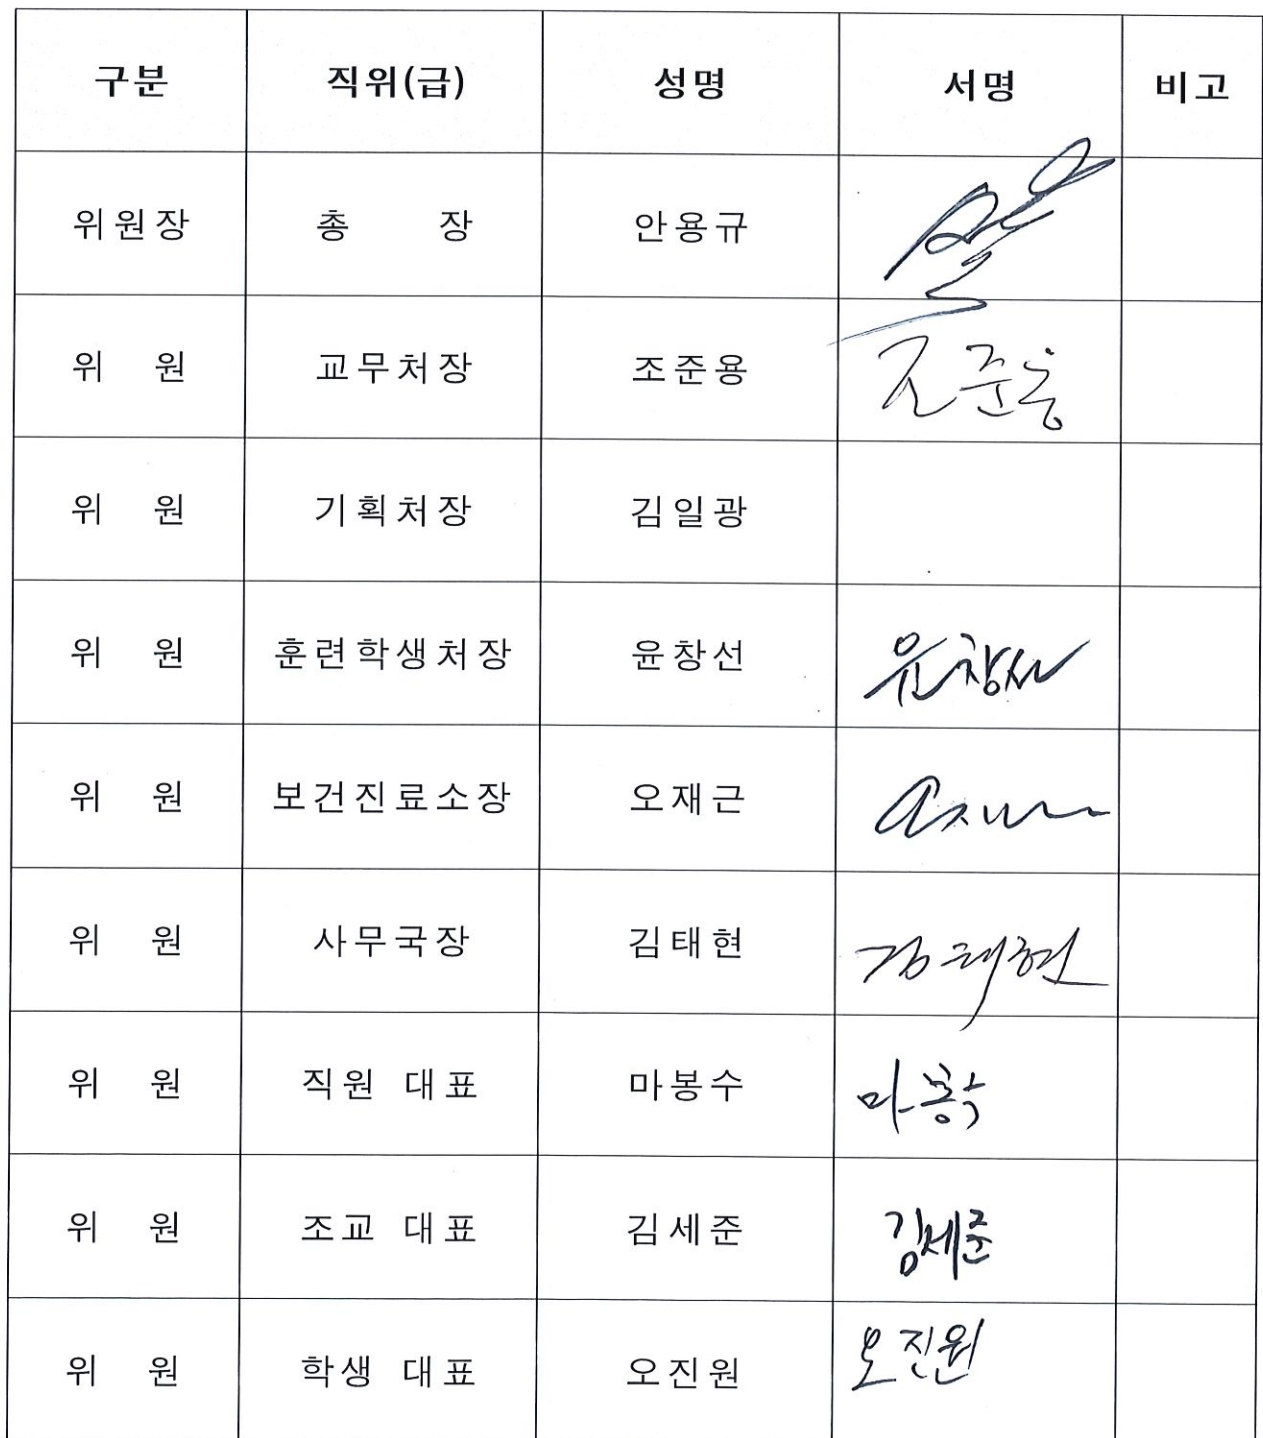 구분 직위(급) 성명 서명 비고
위원장 총 장 안용규
위 원 교무처장 조준용 조준용
위 원 기획처장 김일광
위 원 훈련학생처장 윤창선 윤창선
위 원 보건진료소장 오재근
위 원 사무국장 김태현 김태현
위 원 직원 대표 마봉수 마봉수
위 원 조교 대표 김세준 김세준
위 원 학생 대표 오진원 오진원